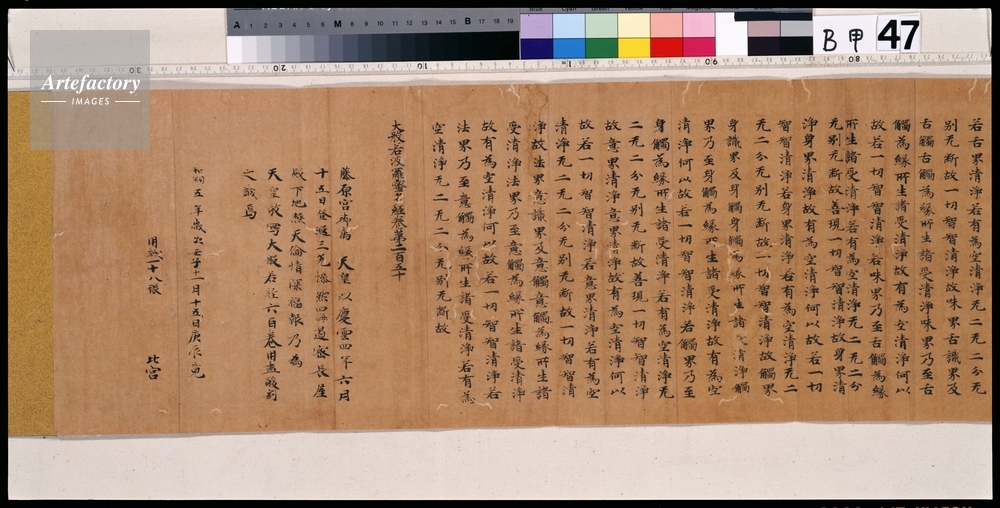 若舌界清淨若有為空清淨无二无二分无
別无斷故一切智智清淨故味界舌識界及
舌觸舌觸為緣所生諸受清淨味界乃至舌
觸為緣所生諸受清淨故有為空清淨何以
故若一切智智清淨若味界乃至舌觸為緣
所生諸受清淨若有為空清淨无二无二分
无別无斷故善現一切智智清淨故身界清
淨身界清淨故有為空清淨何以故若一切
智智清淨若身界清淨若有為空清淨无二
无二分无別无斷故一切智智清淨故觸界
身識界及身觸身觸為緣所生諸受清淨觸
界乃至身觸為緣所生諸受清淨故有為空
清淨何以故若一切智智清淨若觸界乃至
身觸為緣所生諸受清淨若有為空清淨无
二无二分无別无斷故善現一切智智清淨
故意界清淨意界清淨故有為空清淨何以
故若一切智智清淨若意界清淨若有為空
清淨无二无二分无別无斷故一切智智清
淨故法界意識界及意觸意觸為緣所生諸
受清淨法界乃至意觸為緣所生諸受清淨
故有為空清淨何以故若一切智智清淨若
法界乃至意觸為緣所生諸受清淨若有為
空清淨无二无二分无別无斷故
大般若波羅蜜多經卷第二百五十
藤原宮御寓 天皇以慶雲四年六月
十五日登遐三光慘然四海遏密長屋
殿下地極天倫情深福報乃為
天皇敬寫大般若經六百卷用盡酸割
之誠焉
和銅五年歲次壬子十一月十五日庚辰竟
用紙一十八張 北宮
Artefactory
IMAGES
B甲
47